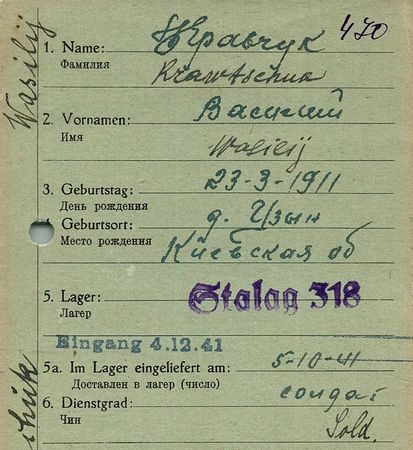 470
1. Name: Кравчук
Фамилия
Krawtschuk
2. Vornamen: Василий
Имя
Wasilij
3. Geburtstag: 23-3-1911
День рождения
4. Geburtsort: д. Узын
Место рождения
Киевская об
5. Lager: Stalag 318
Лагер
Eingang 4.12.41
5a. Im Lager eingeliefert am: 5-10-41
Доставлен в лагер (число)
6. Dienstgrad: солдат
Чин
Sold.
Wasilij